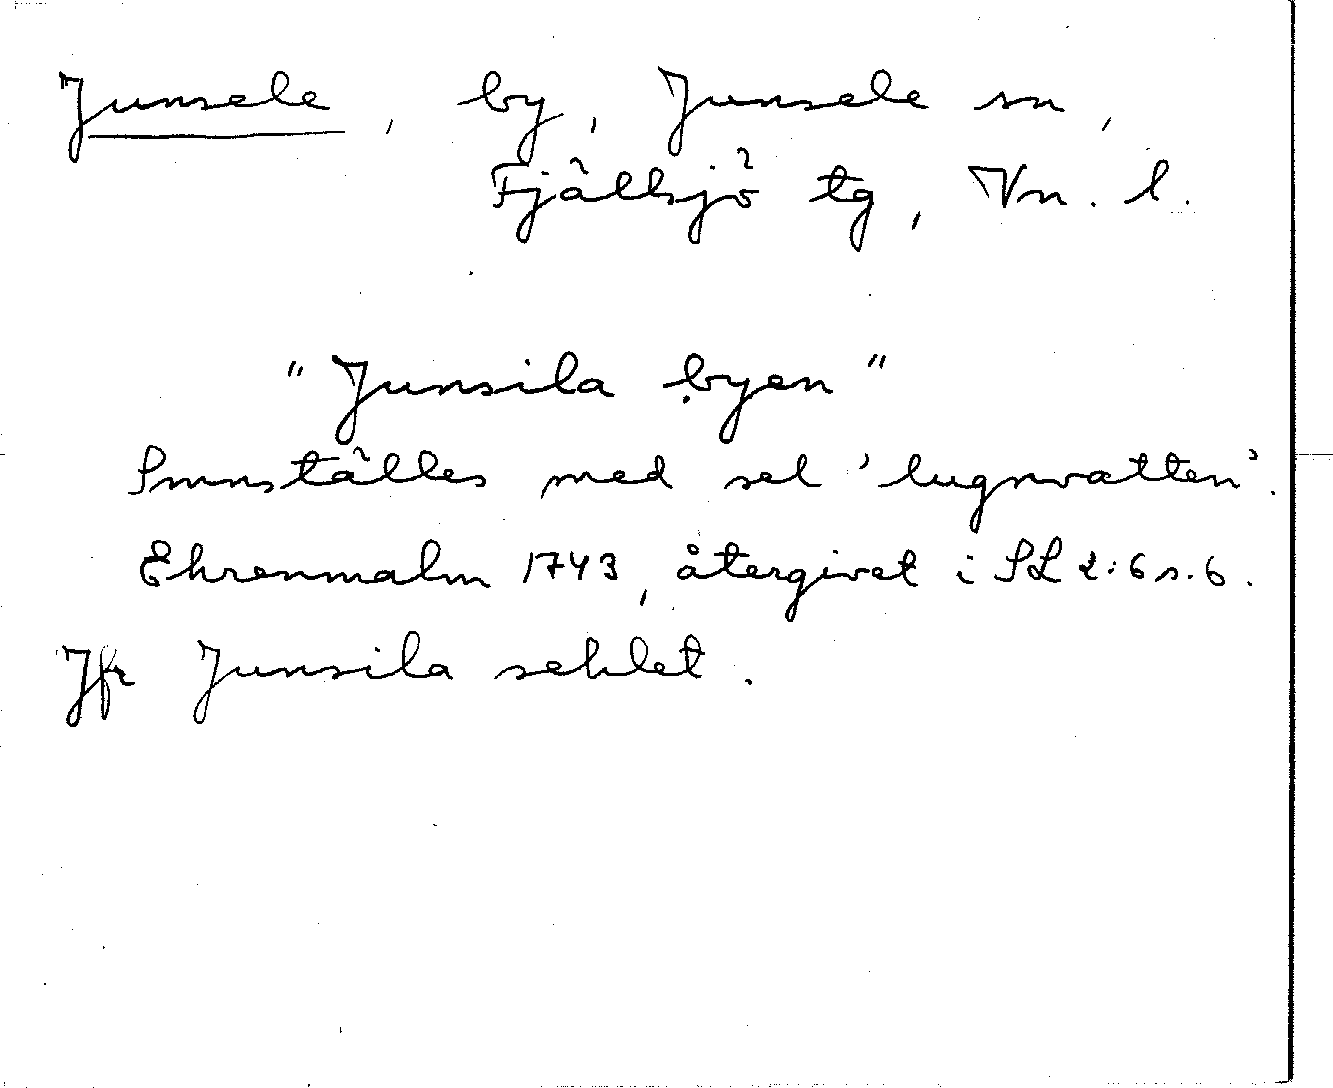 Junsele, by, Junsele sn,
Fjällsjö tg, Vn. l.
"Junsila byen"
Smnställes med sel 'lugnvatten'.
Ehrenmalm 1743, återgivet i SL 2:6 s. 6.
Jfr Junsila sehlet.